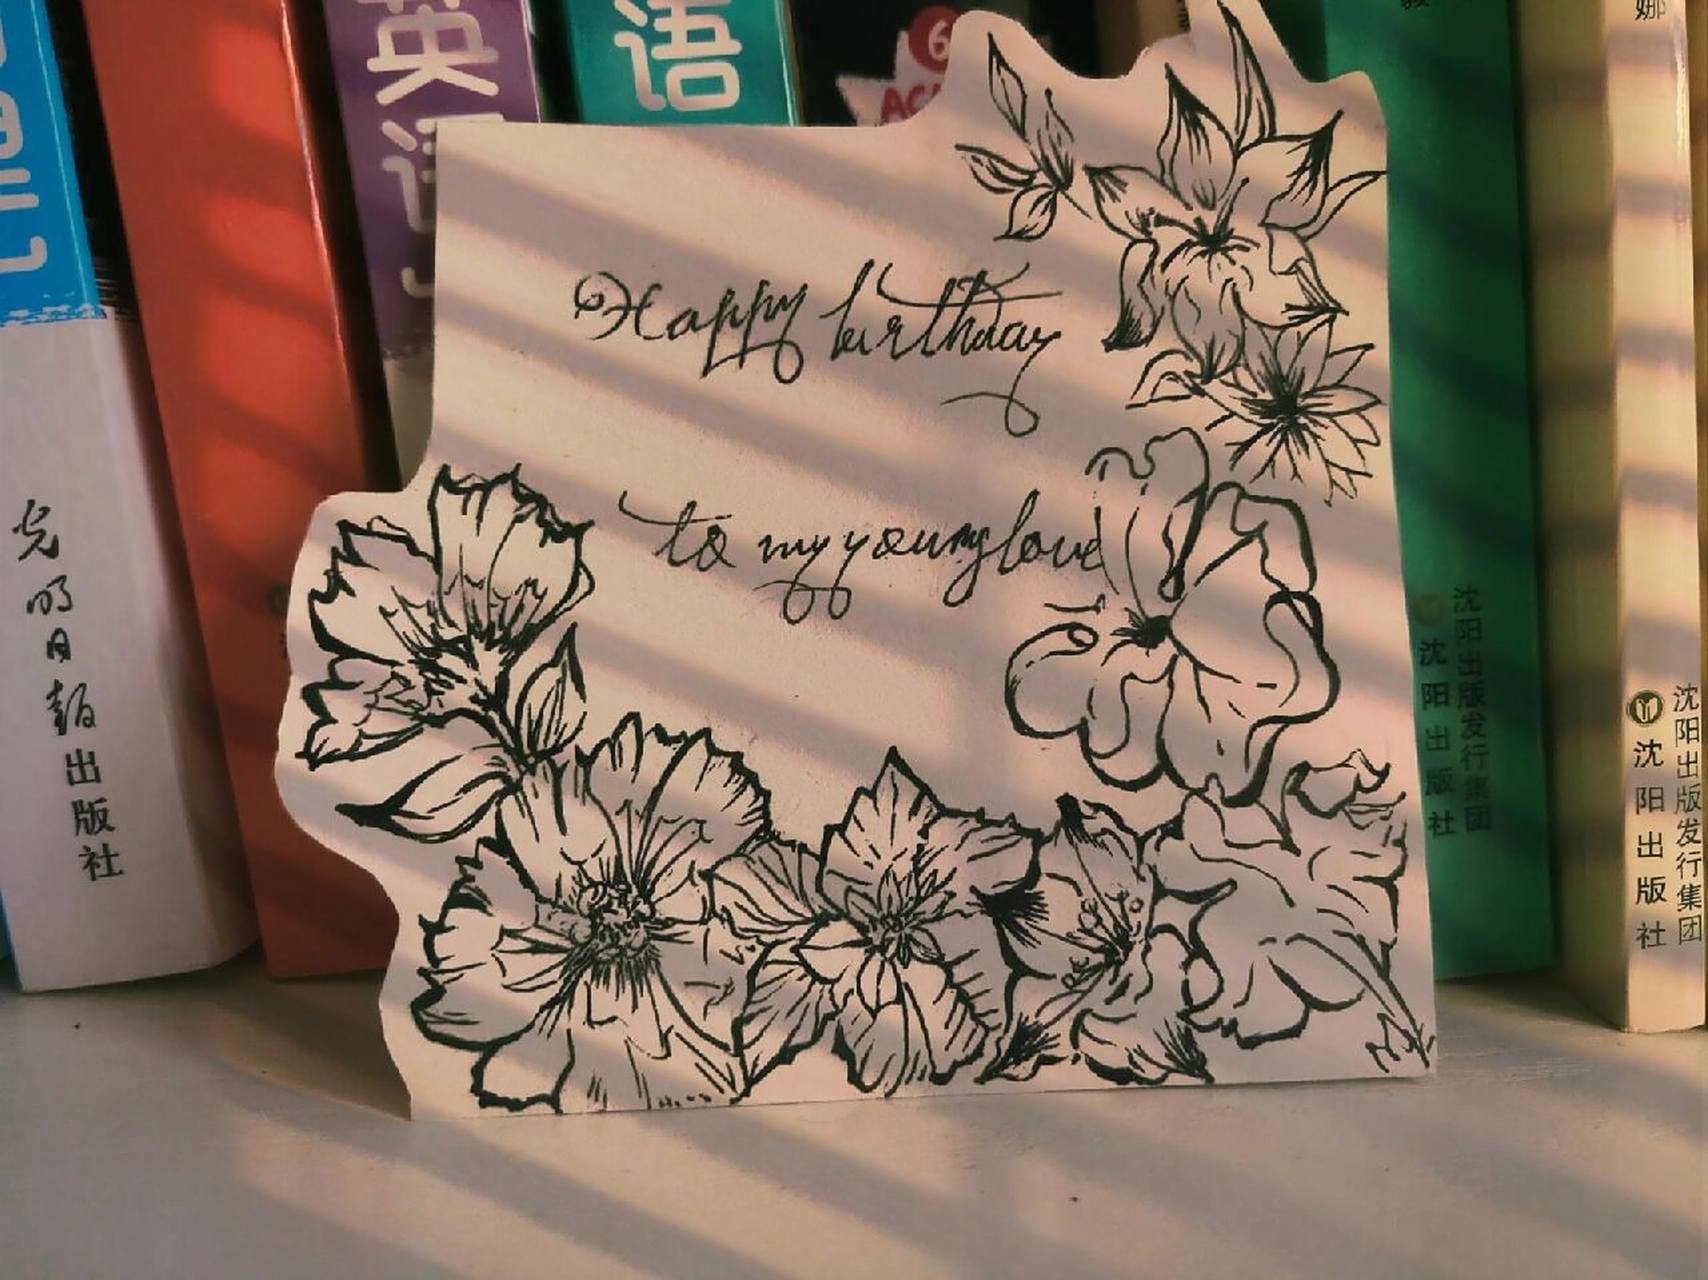 英语
语
6
Happy birthday
to my young love
光明日报出版社
沈阳出版发行集团
沈阳出版社
沈阳出版发行集团
沈阳出版社
娜